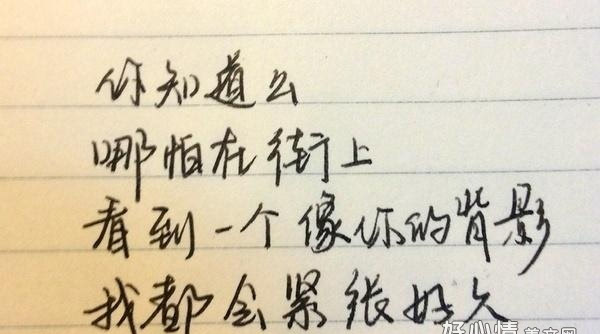 你知道么
哪怕在街上
看到一个像你的背影
我都会紧张好久
好心情美文网